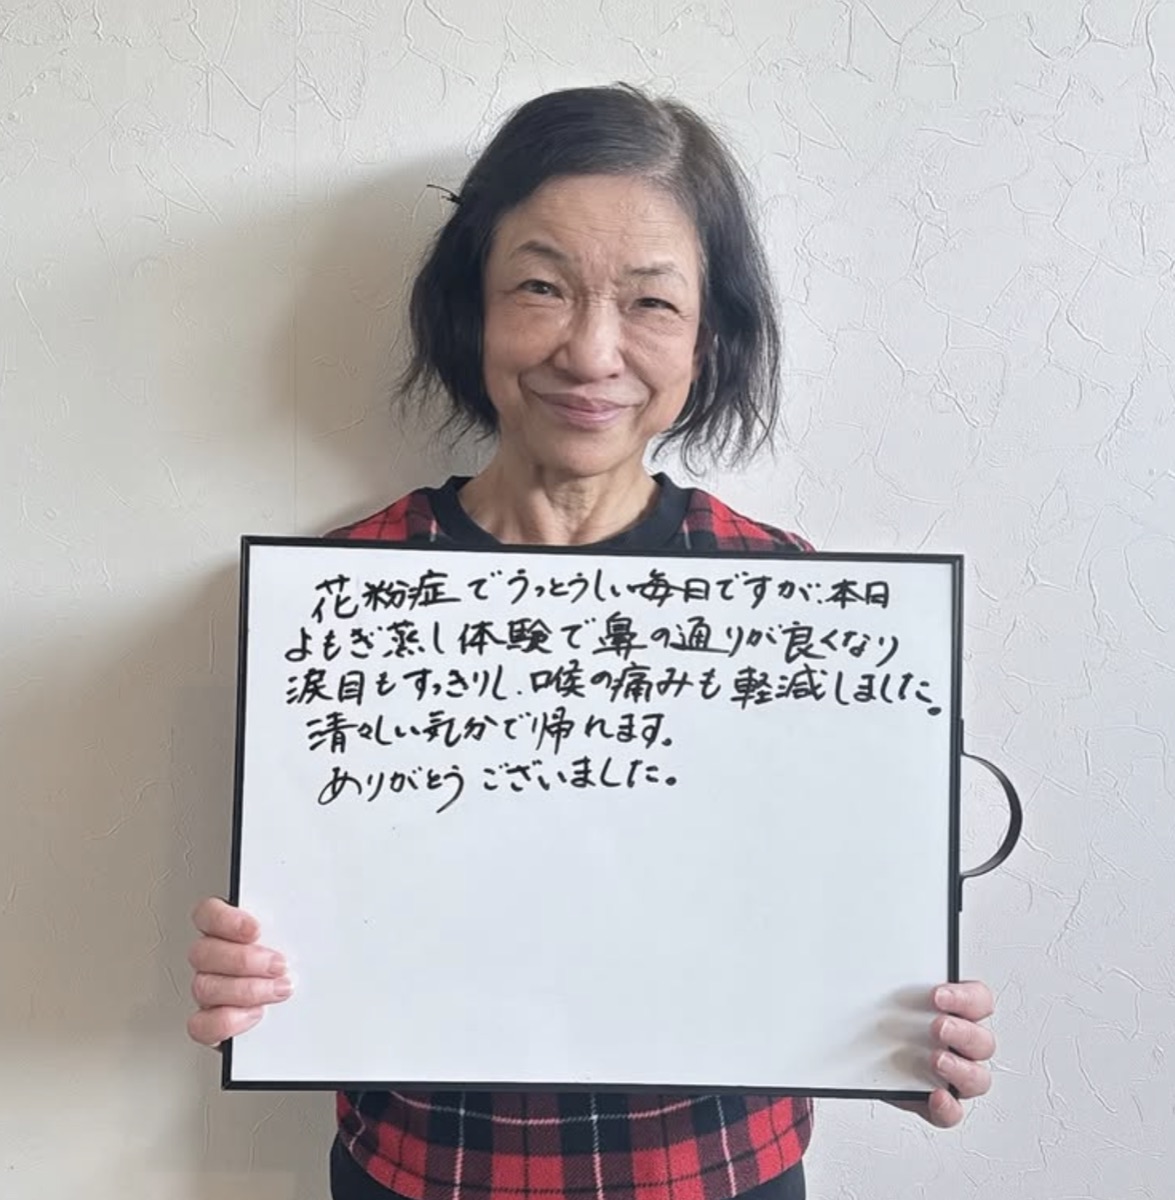 花粉症でうっとうしい毎日ですが、本日
よもぎ蒸し体験で鼻の通りが良くなり
涙目もすっきりし、喉の痛みも軽減しました。
清々しい気分で帰れます。
ありがとうございました。